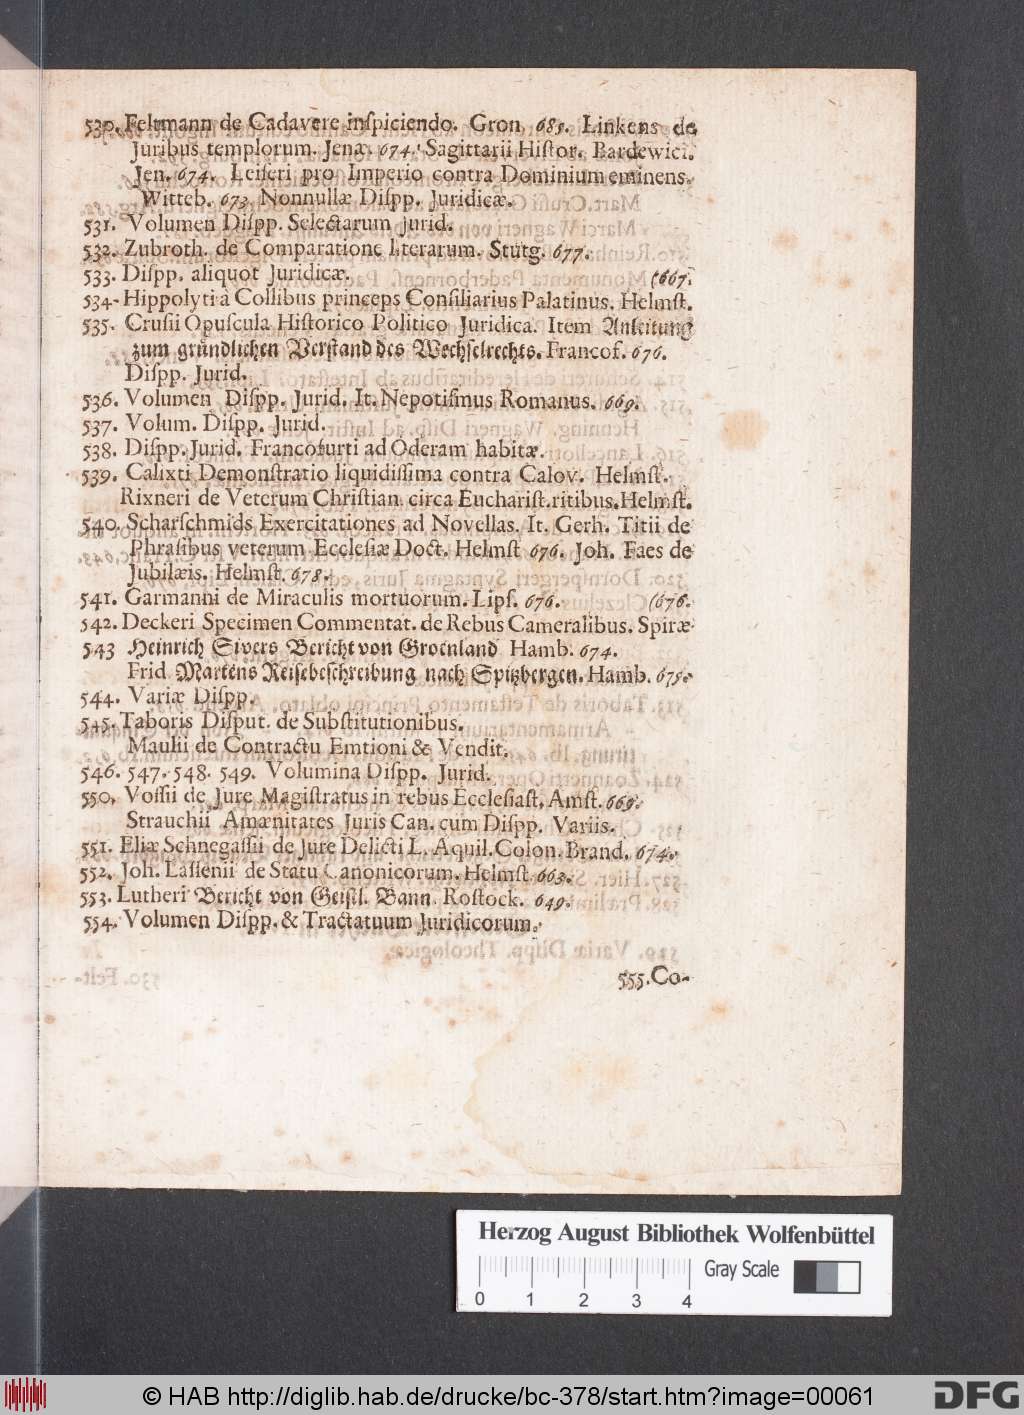 530. Feltmann de Cadavere inſpiciendo. Gron. 689. Linkens de
Juribus templorum. Jenæ. 674. Sagittarii Hiſtor. Bardewici.
Jen. 674. Leiſeri pro Imperio contra Dominium eminens.
Witteb. 673. Nonnullæ Diſpp. Juridicæ.
531. Volumen Diſpp. Selectarum Jurid.
532. Zubroth. de Comparatione literarum. Stutg. 677.
533. Diſpp. aliquot Juridicæ. (667.
534. Hippolyti à Collibus princeps Conſiliarius Palatinus. Helmſt.
535. Cruſii Opuſcula Hiſtorico Politico Juridica. Item Anleitung
zum gründlichen Verſtand des Wechſelrechts. Francof. 676.
Diſpp. Jurid.
536. Volumen Diſpp. Jurid. It. Nepotiſmus Romanus. 669.
537. Volum. Diſpp. Jurid.
538. Diſpp. Jurid. Francofurti ad Oderam habitæ.
539. Calixti Demonſtratio liquidiſſima contra Calov. Helmſt.
Rixneri de Veterum Chriſtian circa Euchariſt. ritibus. Helmſt.
540. Scharſchmids Exercitationes ad Novellas. It. Gerh. Titii de
Phraſibus veterum Eccleſiæ Doct. Helmſt 676. Joh. Faes de
Jubilæis. Helmſt. 678.
541. Garmanni de Miraculis mortuorum. Lipſ. 676. (676.
542. Deckeri Specimen Commentat. de Rebus Cameralibus. Spiræ
543 Heinrich Sivers Bericht von Groenland Hamb. 674.
Frid. Martens Reiſebeſchreibung nach Spitzbergen. Hamb. 675.
544. Variæ Diſpp.
545. Taboris Diſput. de Subſtitutionibus.
Maulii de Contractu Emtioni & Vendit.
546. 547. 548. 549. Volumina Diſpp. Jurid.
550. Voſſii de Jure Magiſtratus in rebus Eccleſiaſt. Amſt. 669.
Strauchii Amænitates Juris Can. cum Diſpp. Variis.
551. Eliæ Schnegaſſii de Jure Delicti L. Aquil. Colon. Brand. 674.
552. Joh. Laſſenii de Statu Canonicorum. Helmſt 663.
553. Lutheri Bericht von Geiſtl. Bann. Roſtock. 649.
554. Volumen Diſpp. & Tractatuum Juridicorum.
555. Co-
Herzog August Bibliothek Wolfenbüttel
Gray Scale
0 1 2 3 4
© HAB http://diglib.hab.de/drucke/bc-378/start.htm?image=00061
DFG